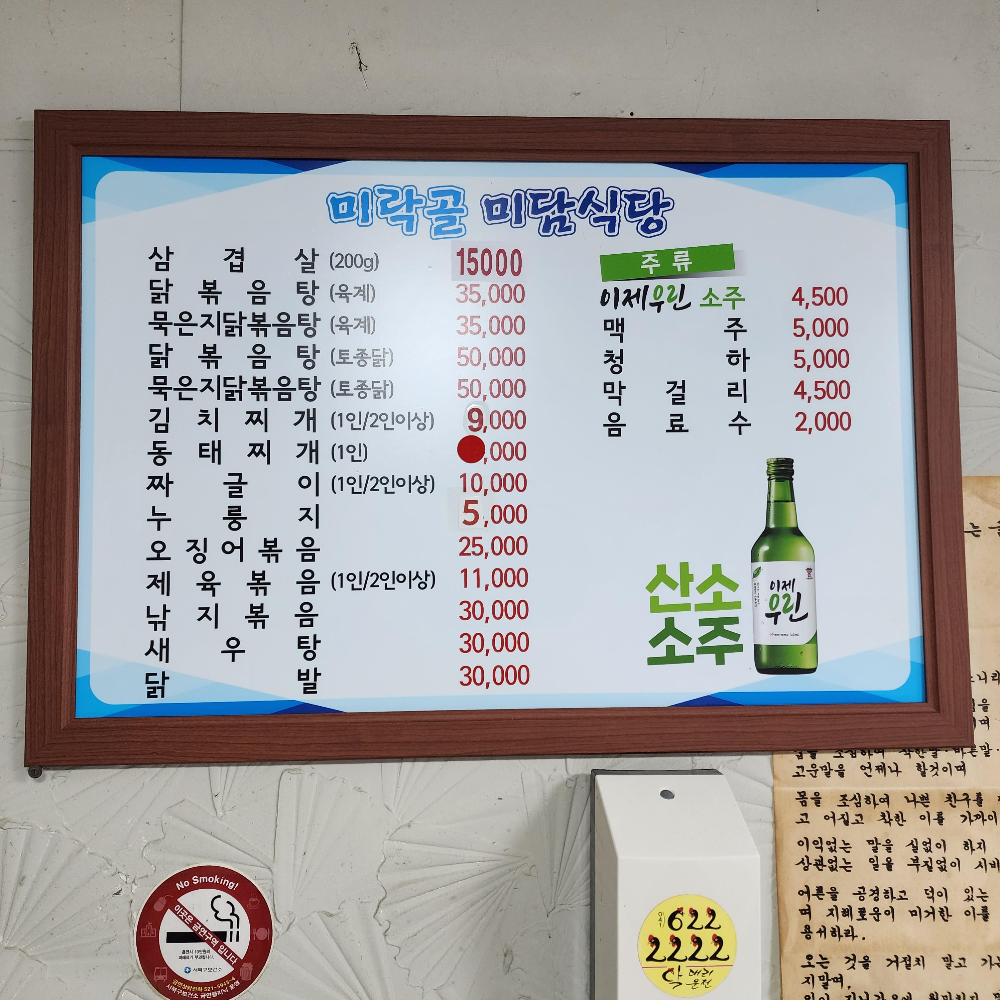 미락골 미담식당
삼겹살 (200g) 15000
닭볶음탕 (육계) 35,000
묵은지닭볶음탕 (육계) 35,000
닭볶음탕 (토종닭) 50,000
묵은지닭볶음탕 (토종닭) 50,000
김치찌개 (1인/2인이상) 9,000
동태찌개 (1인) ,000
짜글이 (1인/2인이상) 10,000
누룽지 5,000
오징어볶음 25,000
제육볶음 (1인/2인이상) 11,000
낚지볶음 30,000
새우탕 30,000
닭발 30,000
주류
이제우린 소주 4,500
맥주 5,000
청하 5,000
막걸리 4,500
음료수 2,000
산소
소주
이제
우린
No Smoking!
이곳은 금연구역 입니다
서북구보건소
041
622
2222
대리
운전
조심하여 착한말 바른말
고운말을 언제나 할것이며
몸을 조심하여 나쁜 친구를
고 어질고 착한 이를 가까이
이익없는 말을 실없이 하지
상관없는 일을 부질없이 시비
어른을 공경하고 덕이 있는
며 지혜로움이 미거한 이를
용서하라.
오는 것을 거절치 말고 가는
지말며,